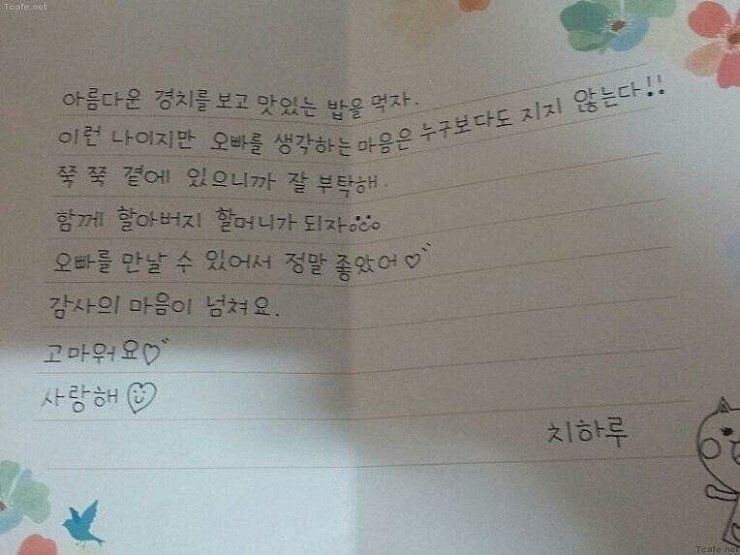 Tcafe.net
아름다운 경치를 보고 맛있는 밥을 먹자.
이런 나이지만 오빠를 생각하는 마음은 누구보다도 지지 않는다!!
쭉 쭉 곁에 있으니까 잘 부탁해.
함께 할아버지 할머니가 되자
오빠를 만날 수 있어서 정말 좋았어♡
감사의 마음이 넘쳐요.
고마워요♡
사랑해
치하루
Tcafe.net